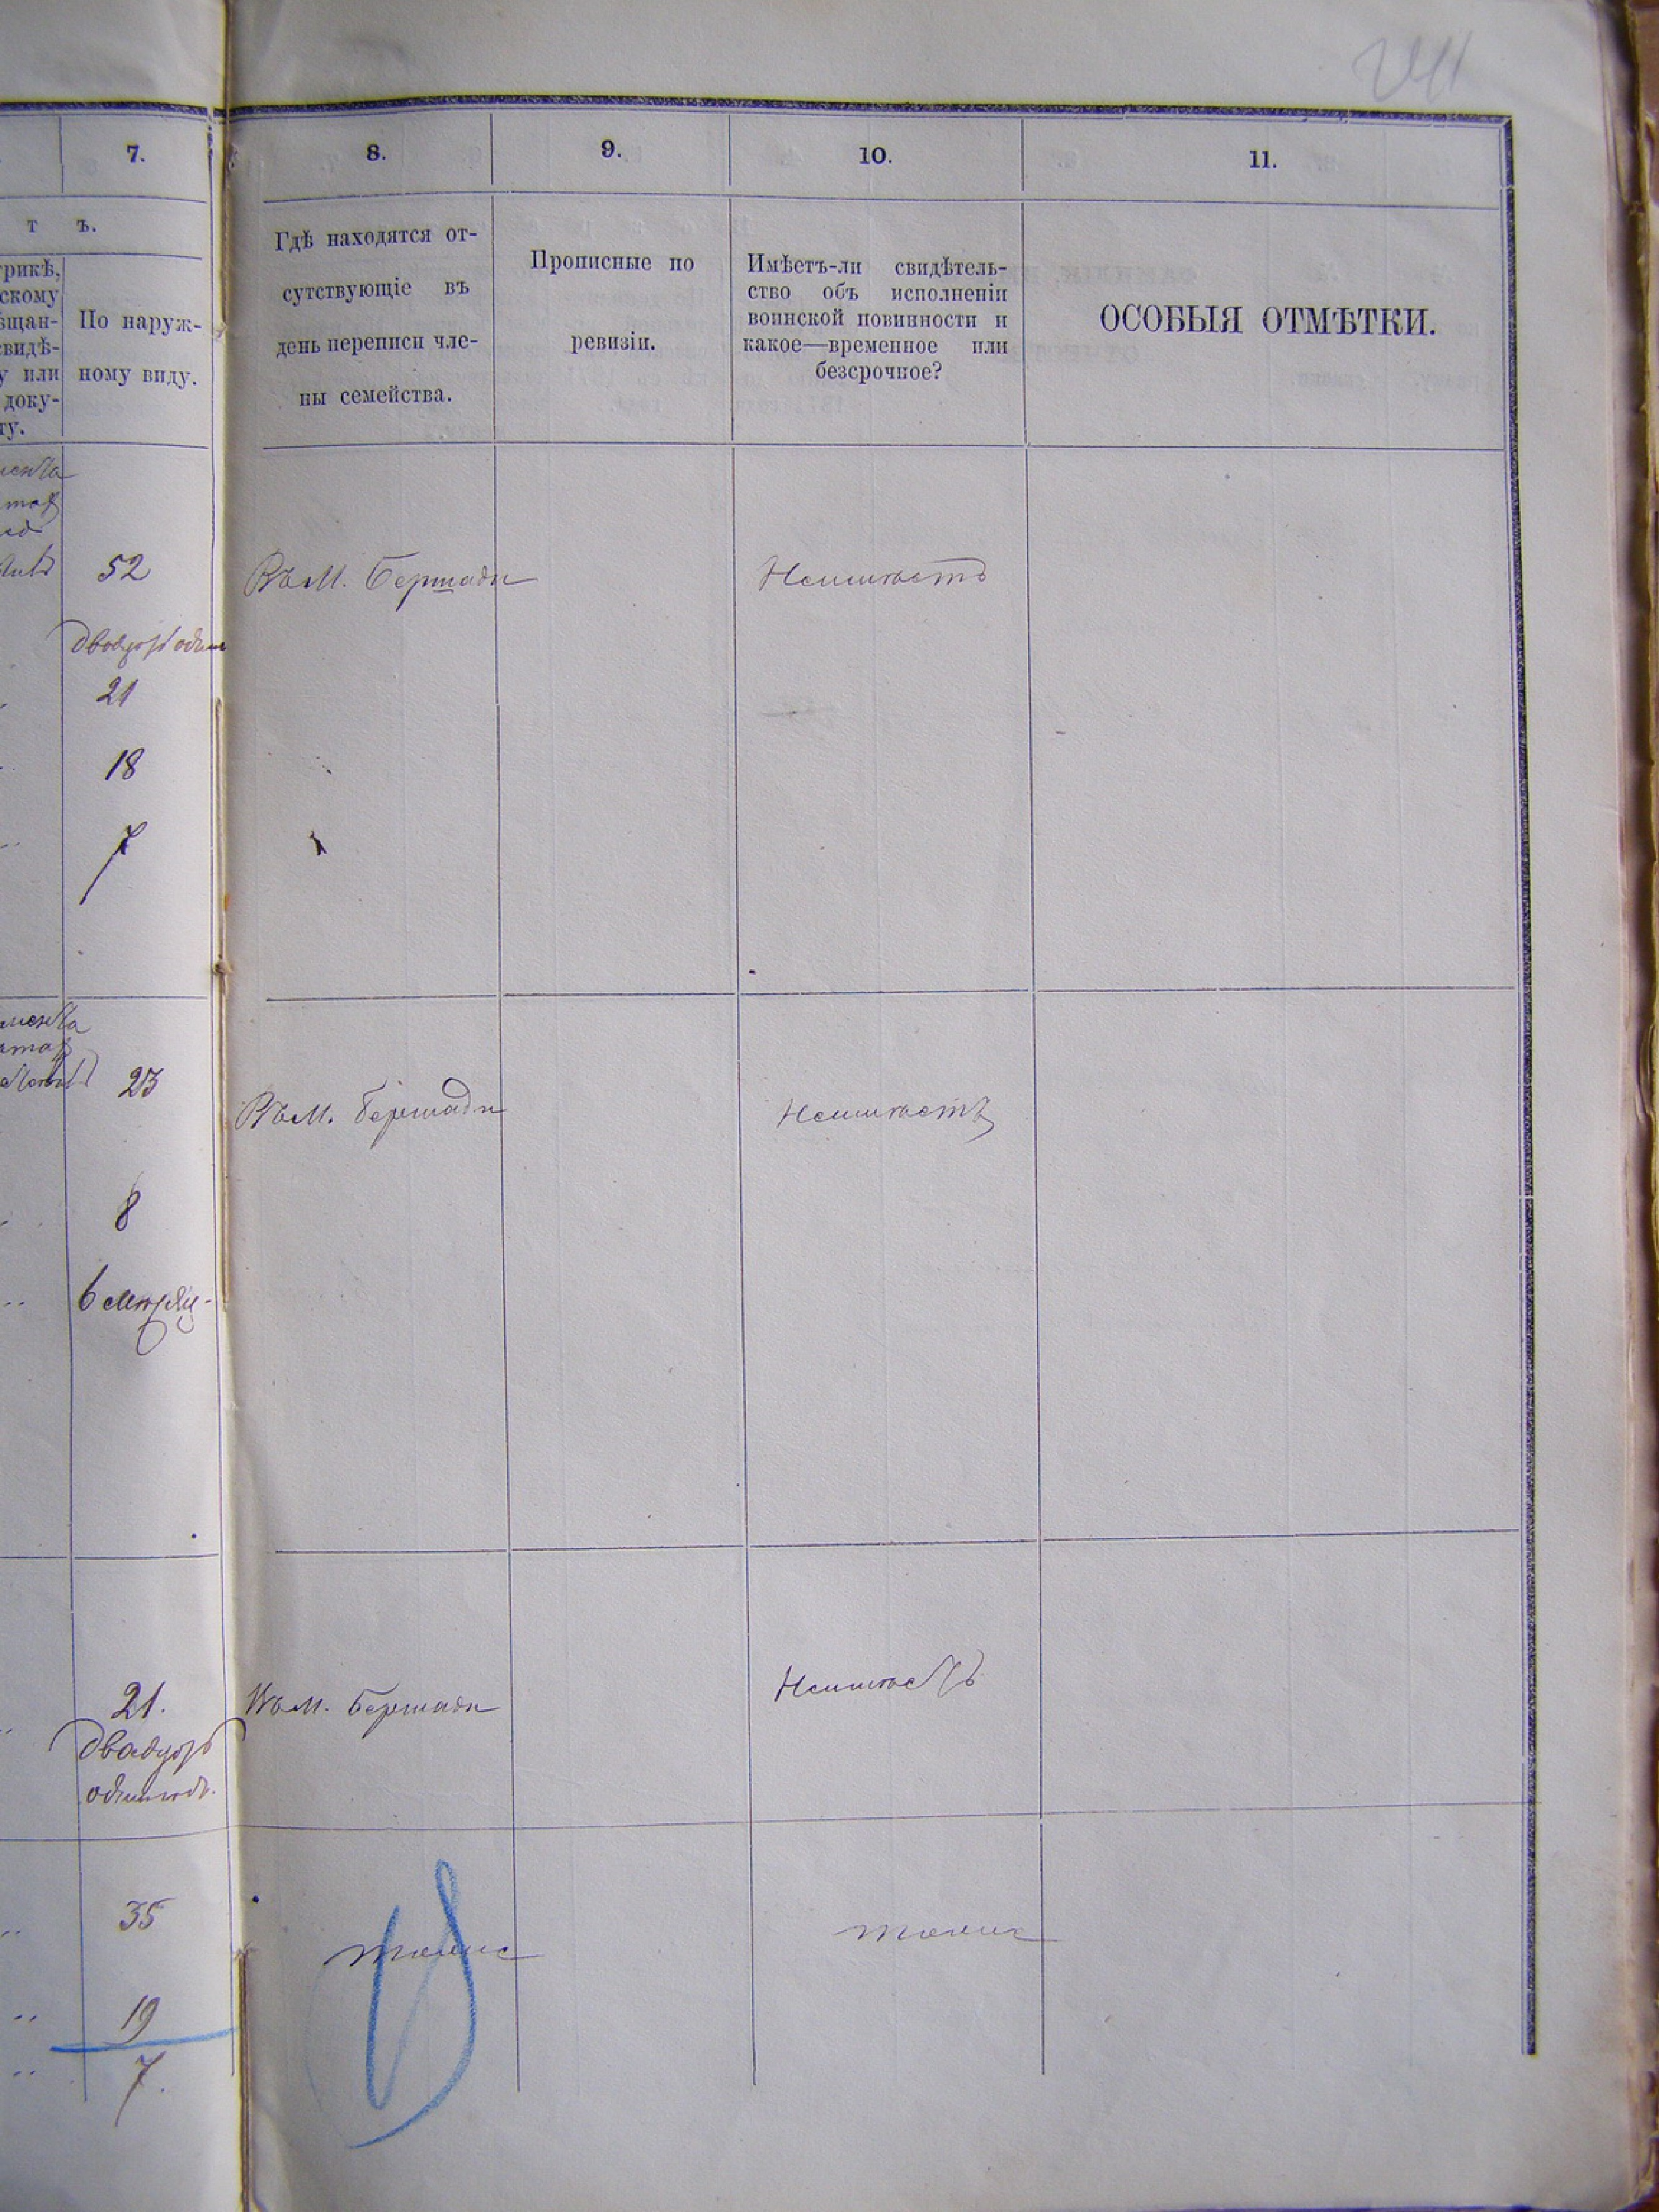 241
7.
8.
9.
10.
11.
т ъ.
трикѣ,
скому
ѣщан-
свидѣ-
у или
доку-
ту.
По наруж-
ному виду.
Гдѣ находятся от-
сутствующіе въ
день переписи чле-
ны семейства.
Прописные по
ревизіи.
Имѣетъ-ли свидѣтель-
ство объ исполненіи
воинской повинности и
какое—временное или
безсрочное?
ОСОБЫЯ ОТМѢТКИ.
52
Въ м. Бершади
Неимѣетъ
21
18
7
23
Въ м. Бершади
Неимѣетъ
8
6
21.
Въ м. Бершади
Неимѣетъ
двадцать
одинъ
35
тоже
тоже
19
7.